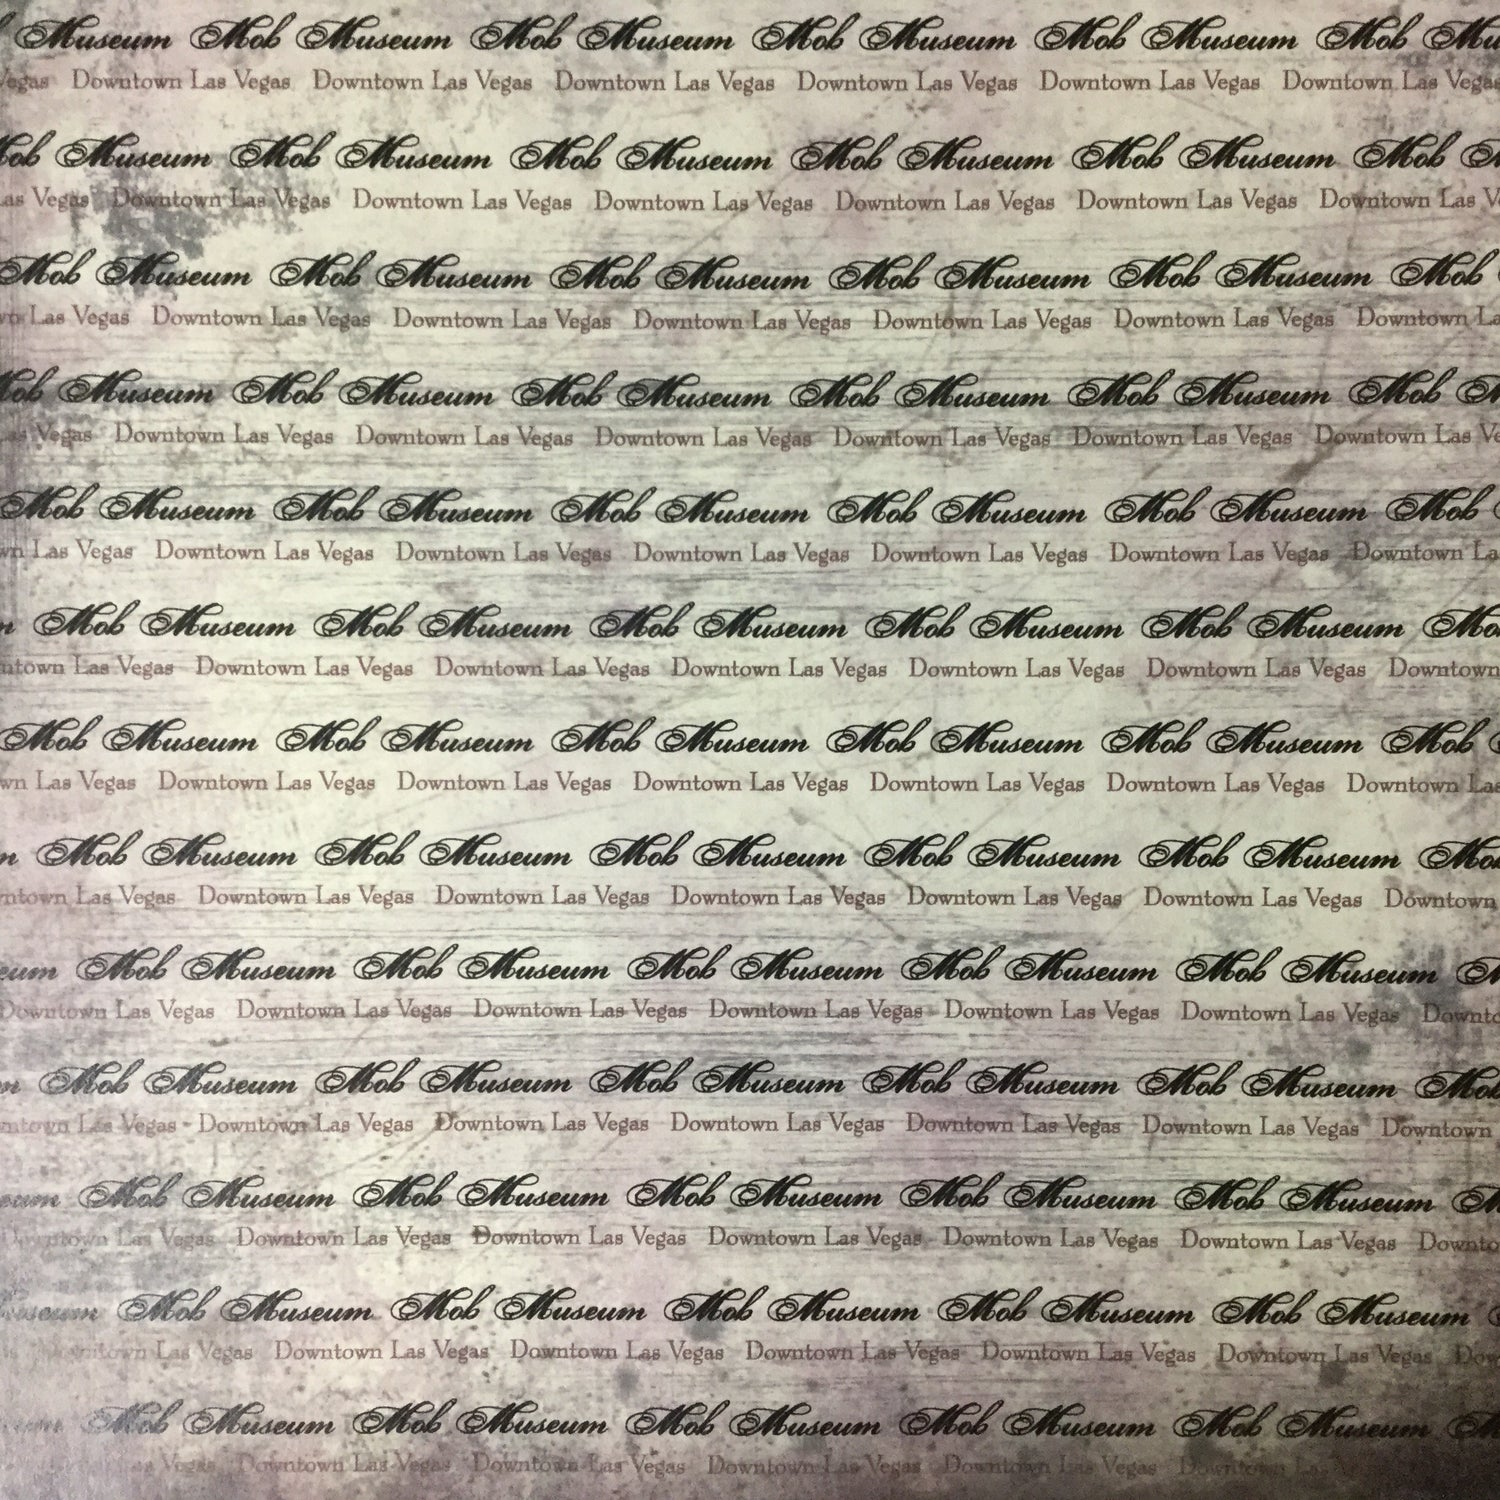 Museum Mob Museum Mob Museum Mob Museum Mob Museum Mob
Vegas Downtown Las Vegas Downtown Las Vegas Downtown Las Vegas Downtown Las Vegas Downtown Las Vegas Downtown Las Vegas
Mob Museum Mob Museum Mob Museum Mob Museum Mob Museum Mob
Las Vegas Downtown Las Vegas Downtown Las Vegas Downtown Las Vegas Downtown Las Vegas Downtown Las Vegas Downtown Las
Mob Museum Mob Museum Mob Museum Mob Museum Mob Museum Mob
Las Vegas Downtown Las Vegas Downtown Las Vegas Downtown Las Vegas Downtown Las Vegas Downtown Las Vegas Downtown
Mob Museum Mob Museum Mob Museum Mob Museum Mob Museum Mob
Las Vegas Downtown Las Vegas Downtown Las Vegas Downtown Las Vegas Downtown Las Vegas Downtown Las Vegas Downtown Las
Mob Museum Mob Museum Mob Museum Mob Museum Mob Museum Mob
Las Vegas Downtown Las Vegas Downtown Las Vegas Downtown Las Vegas Downtown Las Vegas Downtown Las Vegas Downtown
Mob Museum Mob Museum Mob Museum Mob Museum Mob Museum
Las Vegas Downtown Las Vegas Downtown Las Vegas Downtown Las Vegas Downtown Las Vegas Downtown Las Vegas Downtown
Mob Museum Mob Museum Mob Museum Mob Museum Mob Museum Mob
Las Vegas Downtown Las Vegas Downtown Las Vegas Downtown Las Vegas Downtown Las Vegas Downtown Las Vegas Downtown Las
Mob Museum Mob Museum Mob Museum Mob Museum Mob Museum Mob
Las Vegas Downtown Las Vegas Downtown Las Vegas Downtown Las Vegas Downtown Las Vegas Downtown Las Vegas Downtown
Mob Museum Mob Museum Mob Museum Mob Museum Mob Museum
Downtown Las Vegas Downtown Las Vegas Downtown Las Vegas Downtown Las Vegas Downtown Las Vegas Downtown Las Vegas
Mob Museum Mob Museum Mob Museum Mob Museum Mob Museum Mob
Las Vegas Downtown Las Vegas Downtown Las Vegas Downtown Las Vegas Downtown Las Vegas Downtown Las Vegas Downtown
Mob Museum Mob Museum Mob Museum Mob Museum Mob Museum
Downtown Las Vegas Downtown Las Vegas Downtown Las Vegas Downtown Las Vegas Downtown Las Vegas Downtown Las Vegas
Museum Mob Museum Mob Museum Mob Museum Mob Museum Mob Museum
Las Vegas Downtown Las Vegas Downtown Las Vegas Downtown Las Vegas Downtown Las Vegas Downtown Las Vegas
Mob Museum Mob Museum Mob Museum Mob Museum Mob Museum
Vegas Downtown Las Vegas Downtown Las Vegas Downtown Las Vegas Downtown Las Vegas Downtown Las